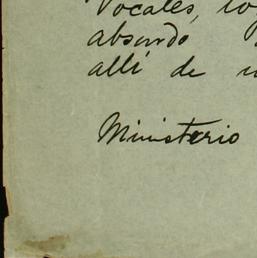 Vocales, lo
absurdo
allí de
Ministerio